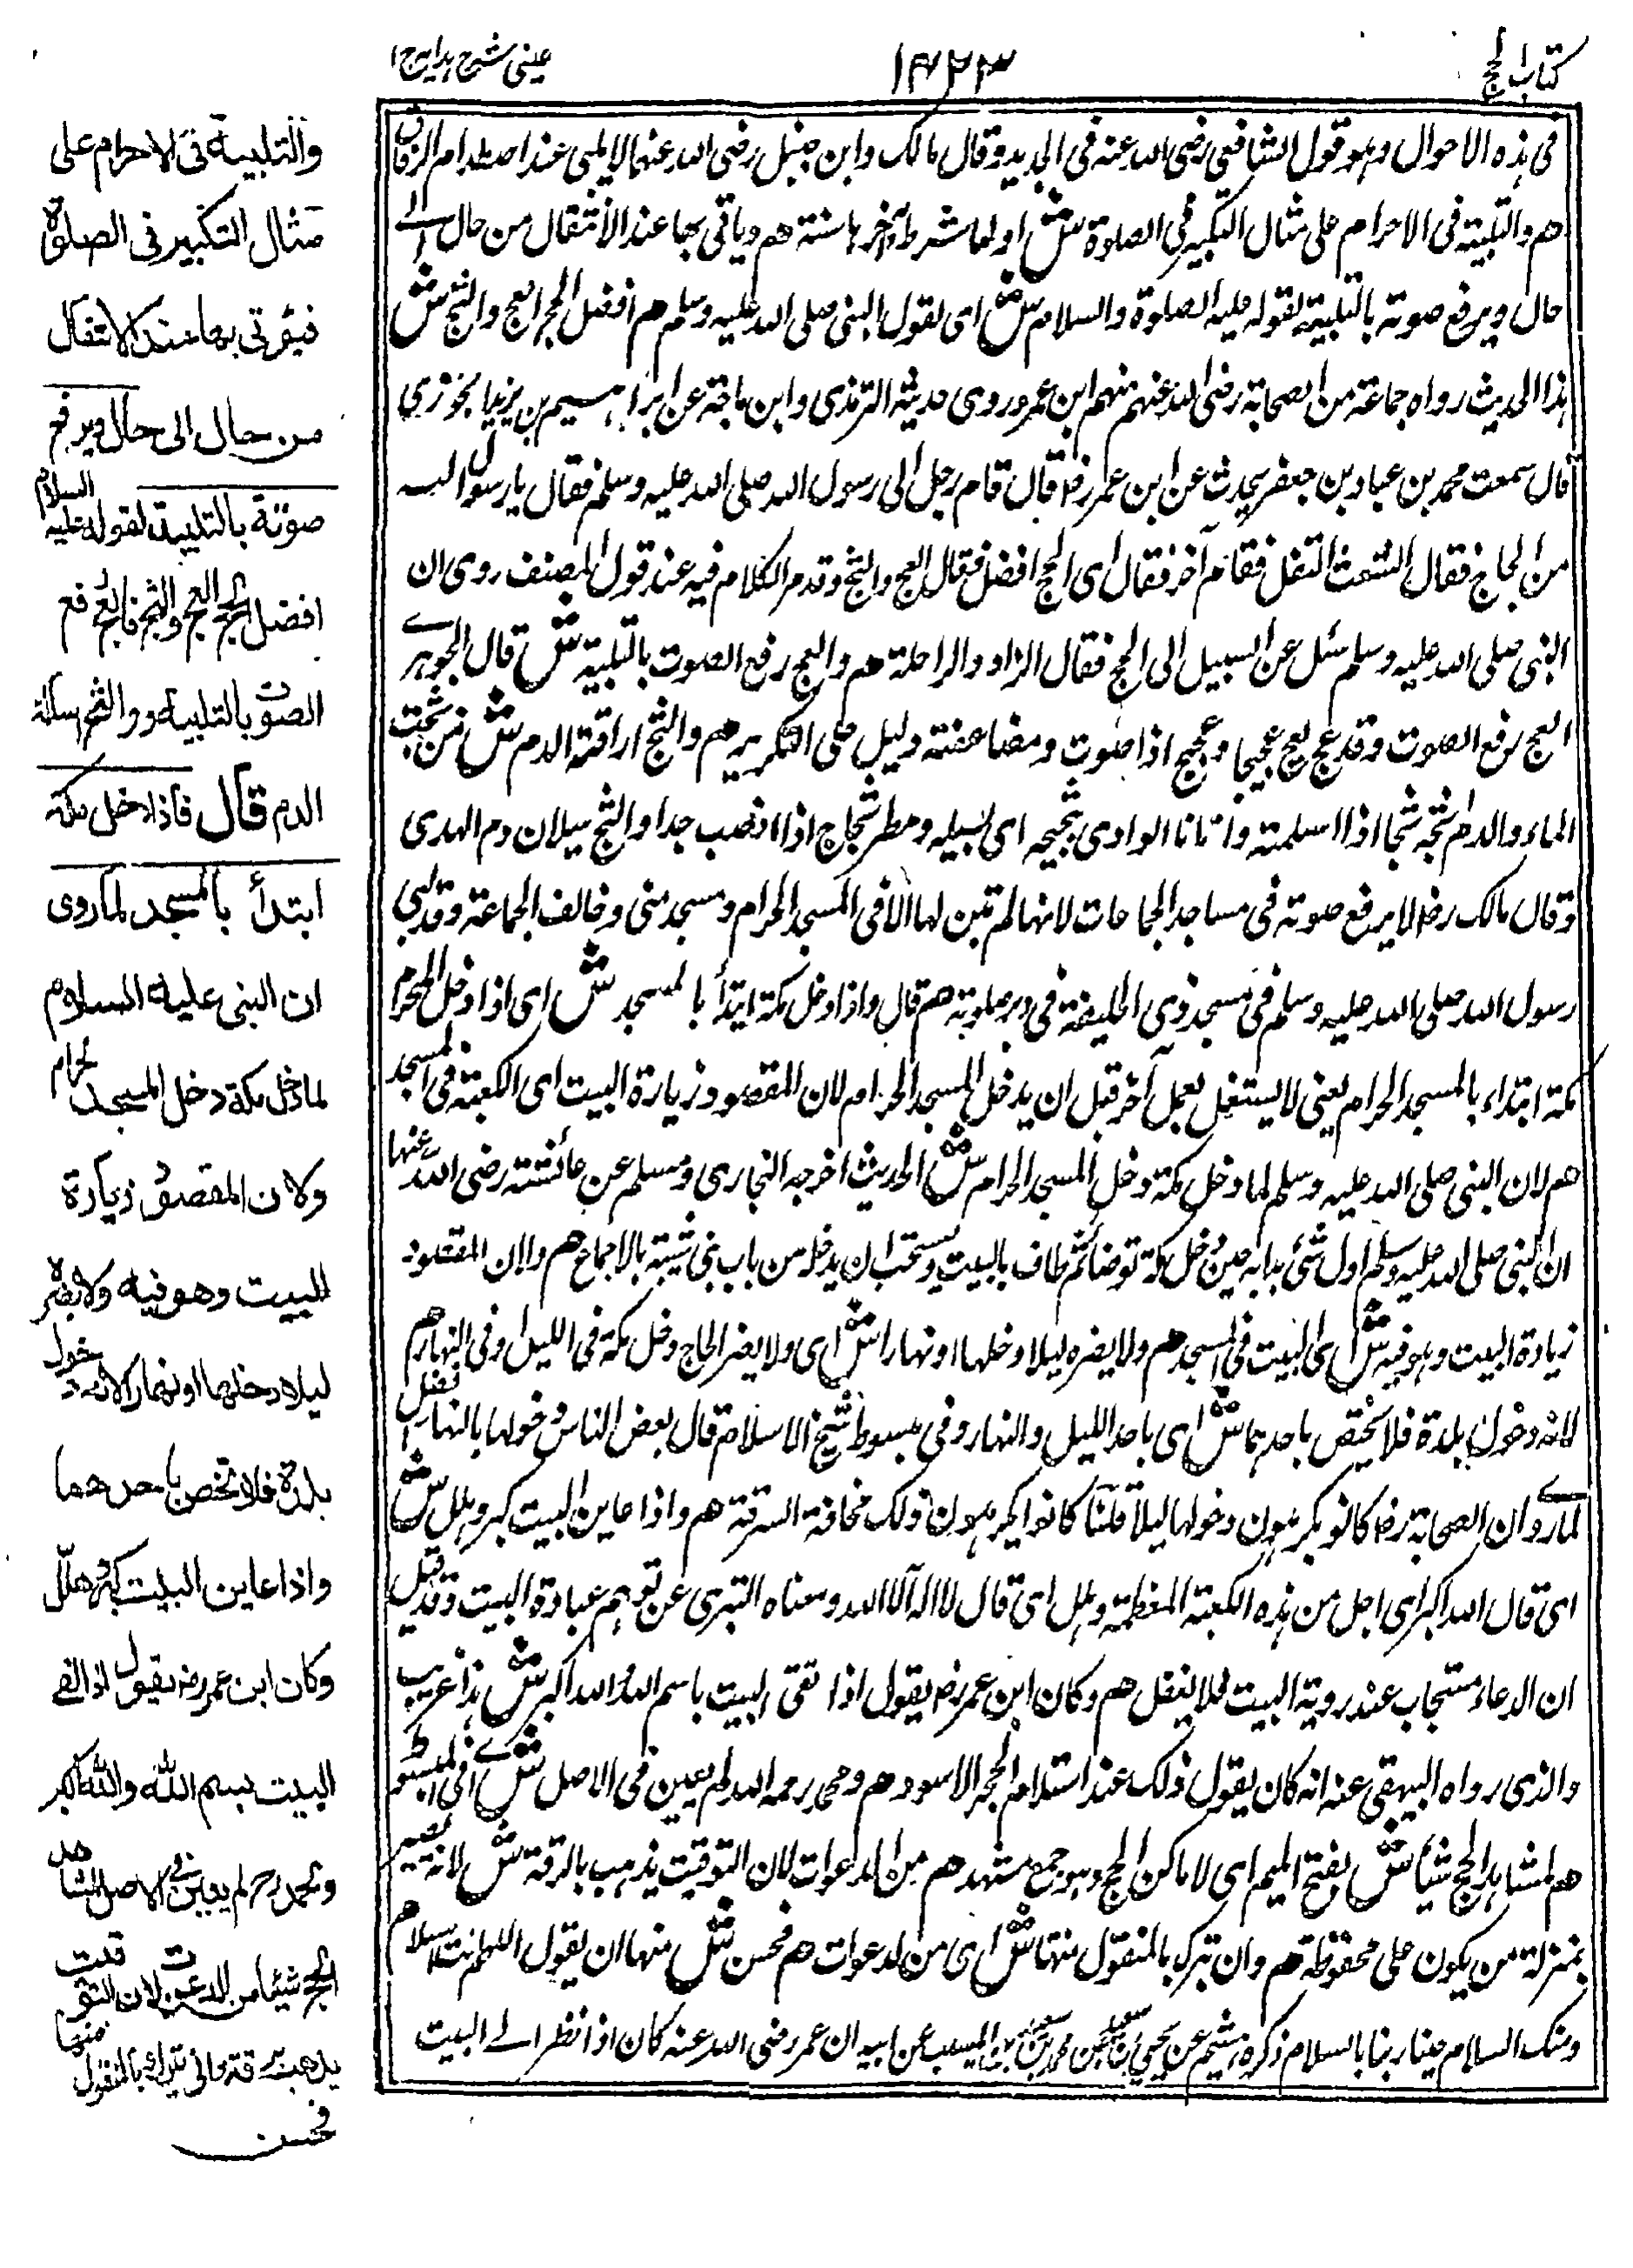 كتاب الحج
١٤٢٣
عينى شرح هداية ج ١
فى هذه الاحوال وهو قول الشافعى رضى الله عنه فى الجديد وقال مالك وابن حنبل رضى الله عنهما لا يلبى عند اصطدام الرفاق
هم والتلبية فى الاحرام على مثال التكبير فى الصلوة ش اولها شرط وآخرها سنة هم وياتى بها عند الانتقال من حال الے
حال ويرفع صوته بالتلبية لقوله عليه الصلوة والسلام ش اى لقول النبى صلى الله عليه وسلم هم افضل الحج العج والثج ش
هذا الحديث رواه جماعة من الصحابة رضى الله عنهم منهم ابن عمر وروى حديثه الترمذى وابن ماجة عن ابراهيم بن يزيد الخوزي
قال سمعت محمد بن عباد بن جعفر يحدث عن ابن عمر رض قال قام رجل الى رسول الله صلى الله عليه وسلم فقال يا رسول الله
من الحاج فقال الشعث التفل فقام آخر فقال اى الحج افضل فقال العج والثج وقد مر الكلام فيه عند قول المصنف روى ان
النبى صلى الله عليه وسلم سئل عن السبيل الى الحج فقال الزاد والراحلة هم والعج رفع الصوت بالتلبية ش قال الجوهرے
العج رفع الصوت وقد عج يعج عجيجا وعجيج اذا صوت ومضاعفته دليل على التكرير هم والثج اراقة الدم ش من ثججت
الماء والدم اثجه ثجا اذا اسلمته واتانا الوادى بثجيجه اى بسيله ومطر ثجاج اذا انصب جدا والثج سيلان دم الهدى
وقال مالك رض لا يرفع صوته فى مساجد الجماعات لانها لم تبن لها الا فى المسجد الحرام ومسجد منى وخالف الجماعة وقد لبى
رسول الله صلى الله عليه وسلم فى مسجد ذى الحليفة فى دبر صلوته هم قال واذا دخل مكة ابتدأ بالمسجد ش اى اذا دخل المحرم
مكة ابتداء بالمسجد الحرام يعنى لا يشتغل بعمل آخر قبل ان يدخل المسجد الحرام لان المقصود زيارة البيت اى الكعبة فى المسجد
هم لان النبى صلى الله عليه وسلم لما دخل مكة دخل المسجد الحرام ش الحديث اخرجه البخارى ومسلم عن عائشة رضى الله عنها
ان النبى صلى الله عليه وسلم اول شئ بدا به حين دخل مكة توضأ ثم طاف بالبيت ويستحب ان يدخل من باب بنى شيبة بالاجماع هم ولان المقصود
زيارة البيت وهو فيه ش اى البيت فى المسجد هم ولا يضره ليلا دخلها او نهارا ش اى ولا يضر الحاج دخل مكة فى الليل او فى النهار هم
لانه دخول بلدة فلا يختص باحدهما ش اى باحد الليل والنهار وفى مبسوط شيخ الاسلام قال بعض الناس دخولها بالنهار افضل
لما روے ان الصحابة رض كانوا يكرهون دخولها ليلا قلنا كانوا يكرهون ذلك مخافة السرقة هم واذا عاين البيت كبر وهلل ش
اى قال الله اكبر اى اجل من هذه الكعبة المعظمة وهلل اى قال لا اله الا الله ومعناه التبرى عن توهم عبادة البيت وقد قيل
ان الدعاء مستجاب عند روية البيت فلا يغفل هم وكان ابن عمر رض يقول اذا لقى البيت باسم الله والله اكبر ش هذا غريب
والذى رواه البيهقى عنه انه كان يقول ذلك عند استلام الحجر الاسود هم ومحمد رحمه الله لم يعين فى الاصل ش اے فى المبسوط
هم لمشاهد الحج شيئا ش بفتح الميم اى لاماكن الحج وهو جمع مشهد هم من الدعوات لان التوقيت يذهب بالرقة ش لانه يصير
بمنزلة من يكون على محفوظة هم وان تبرك بالمنقول منها ش اى من الدعوات هم فحسن ش منها ان يقول اللهم انت السلام
ومنك السلام حينا ربنا بالسلام ذكره هشيم عن يحيى بن سعيد عن محمد بن سعيد بن المسيب عن ابيه ان عمر رضى الله عنه كان اذا نظر الے البيت
والتلبية فى الاحرام على
مثال التكبير فى الصلوة
فيؤتى بها عند الانتقال
من حال الى حال ويرفع
صوته بالتلبية لقوله عليه السلام
افضل الحج العج والثج فالعج رفع
الصوت بالتلبية والثج اسالة
الدم قال فاذا دخل مكة
ابتدأ بالمسجد لما روى
ان النبى عليه السلام
لما دخل مكة دخل المسجد الحرام
ولان المقصود زيارة
البيت وهو فيه ولا يضره
ليلا دخلها او نهارا لانه دخول
بلدة فلا تخص باحدهما
واذا عاين البيت كبر وهلّل
وكان ابن عمر رض يقول اذا لقى
البيت بسم الله والله اكبر
ومحمد رح لم يعين فى الاصل لمشاهد
الحج شيئا من الدعوات لان التوقيت
يذهب بالرقة وان تبرك بالمنقول منها
فحسن